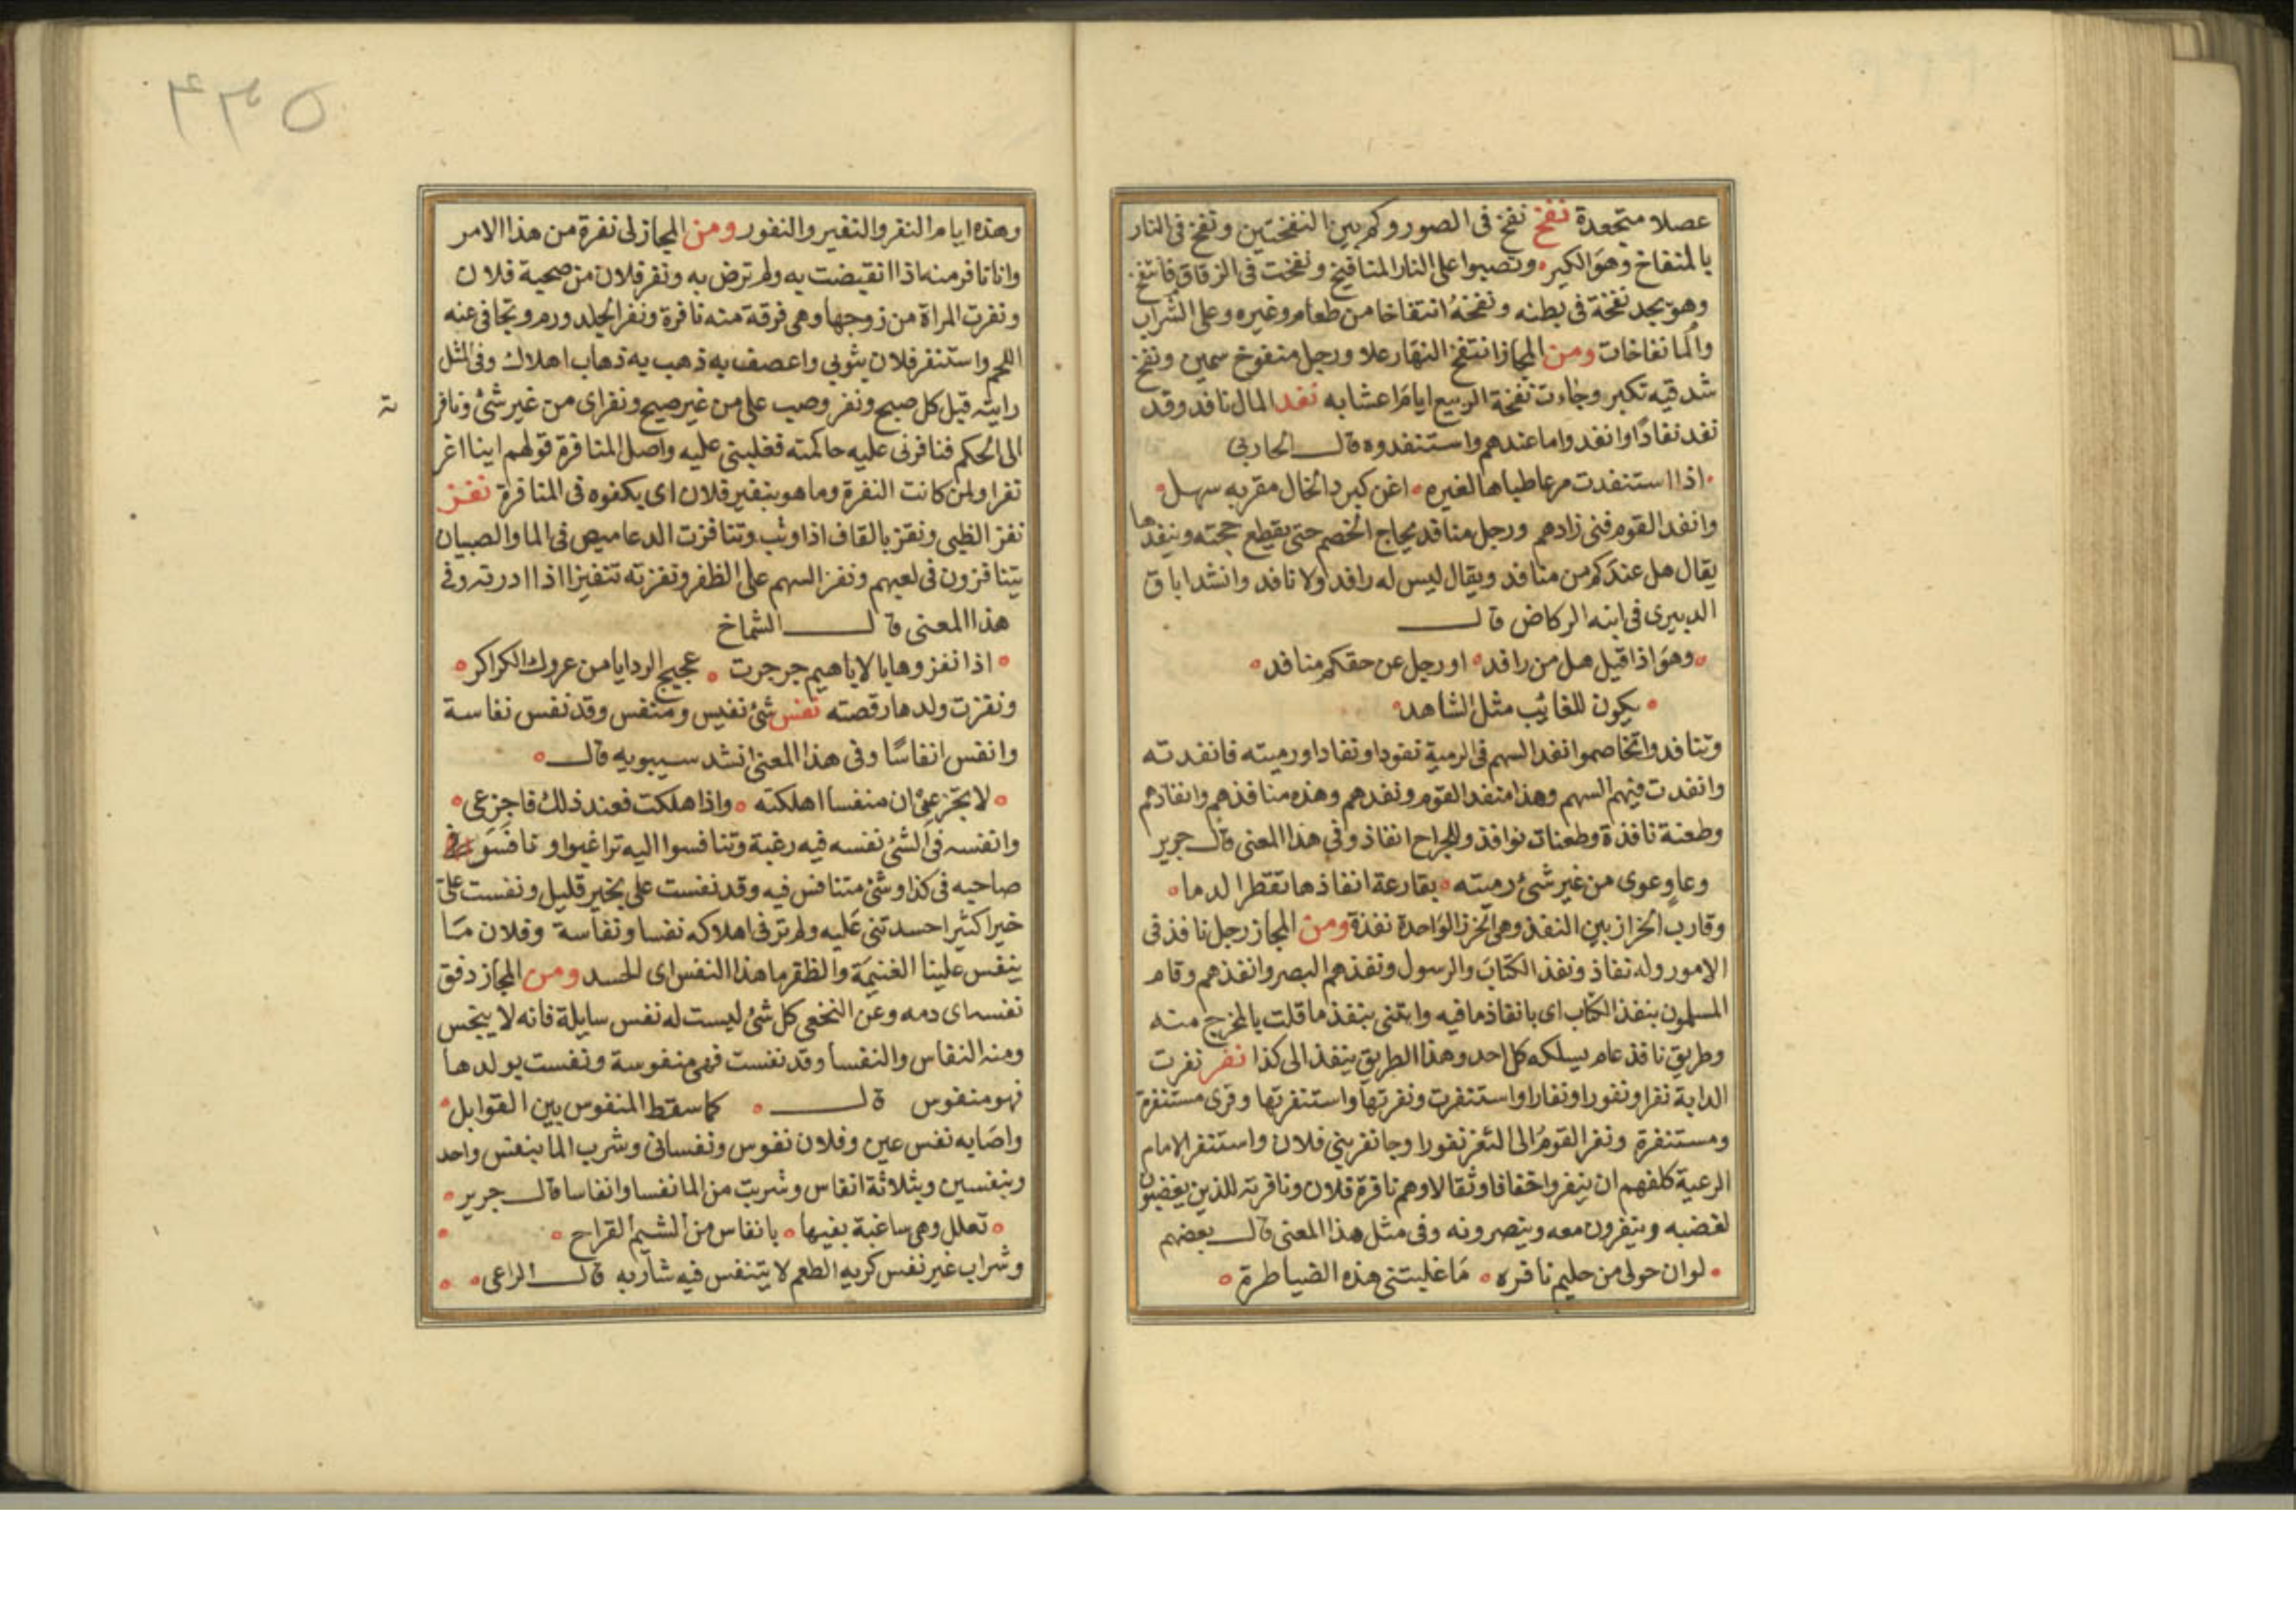 عصلا متجعدة نفخ نفخ فى الصور وكم بين النفختين ونفخ فى النار
بالمنفاخ وهو الكير ونصبوا على النار المنافيخ ونفخت فى الزقاق فانتفخ
وهو يجد نفخة فى بطنه ونفخة انتفاخا من طعام وغيره وعلى الشراب
والما نفاخات ومن المجاز انتفخ النهار علا ورجل منفوخ سمين ونفخ
شدقيه تكبر وجاءت نفخة الربيع ايام اعشابه نفد المال نافد وقد
نفد نفادا وانفدوا ما عندهم واستنفدوه قال الحاربى
اذا استنفدت مرعا طباها لغيره اغن كبرد الخال مقربه سهل
وانفد القوم فنى زادهم ورجل منافد يحاج الخصم حتى يقطع حجته وينفدها
يقال هل عندكم من منافد ويقال ليس له رافد ولا نافد وانشد اباق
الدبيرى فى ابنه الركاض قال
وهو اذا قيل هل من رافد او رجل عن حقكم منافد
يكون للغائب مثل الشاهد
وتنافدوا تخاصموا انفد السهم فى الرمية نفودا ونفادا ورميته فانفدته
وانفدت فيهم السهم وهذا منفد القوم ونفدهم وهذه منافذهم وانفادهم
وطعنة نافذة وطعنات نوافذ وللجراح انفاذ وفى هذا المعنى قال جرير
وعاو عوى من غير شئ رميته بقارعة انفاذها تقطر الدما
وقارب الخراز بين النفذ وهى الخرز الواحدة نفذة ومن المجاز رجل نافذ فى
الامور وله نفاذ ونفذ الكتاب والرسول ونفذهم البصر وانفذهم وقام
المسلمون بنفذ الكتاب اى بانفاذ ما فيه وايتنى بنفذ ما قلت بالمخرج منه
وطريق نافذ عام يسلكه كل احد وهذا الطريق ينفذ الى كذا نفر نفرت
الدابة نفرا ونفورا ونفارا واستنفرت ونفرتها واستنفرتها وقرى مستنفرة
ومستنفرة ونفر القوم الى الثغر نفورا وجا نفر بنى فلان واستنفر الامام
الرعية كلفهم ان ينفروا خفافا وثقالا وهم نافرة فلان ونافرته للذين يغضبون
لغضبه وينفرون معه وينصرونه وفى مثل هذا المعنى قال بعضهم
لو ان حولى من حليم نافره ما غلبتنى هذه الضياطرة
٤٣٥
وهذه ايام النفر والنفير والنفور ومن المجاز لى نفرة من هذا الامر
وانا نافر منه اذا انقبضت به ولم ترض به ونفر فلان من صحبة فلان
ونفرت المراة من زوجها وهى فرقة منه نافرة ونفر الجلد ورم وتجافى عنه
اللحم واستنفر فلان بثوبى واعصف به ذهب به ذهاب اهلاك وفى المثل
رايته قبل كل صبح ونفر وصب على من غير صبح ونفر اى من غير شئ ونافر
ته
الى الحكم فنافرنى عليه حاكمته فغلبنى عليه واصل المنافرة قولهم اينا اغر
نفرا ولمن كانت النفرة وما هو بنفير فلان اى بكفوه فى المنافرة نفز
نفز الظبى ونقز بالقاف اذا وثب وتنافزت الدعاميص فى الما والصبيان
يتنافزون فى لعبهم ونفز السهم على الظفر ونفزته تنفيزا اذا ادرته وفى
هذا المعنى قال الشماخ
اذا نفزوها بالاباهيم جرجرت عجيج الردايا من عروك الكراكر
ونفزت ولدها رقصته نفس شئ نفيس ومنفس وقد نفس نفاسة
وانفس انفاسا وفى هذا المعنى انشد سيبويه قال
لا تجزعى ان منفسا اهلكته واذا هلكت فعند ذلك فاجزعى
وانفسه فى الشئ نفسه فيه رغبة وتنافسوا اليه تراغبوا ونافسوا
صاحبه فى كذا وشئ متنافس فيه وقد نفست على بخير قليل ونفست على
خيرا كثيرا حسدتنى عليه ولم ترنى اهلا له نفسا ونفاسة وفلان ما
ينفس علينا الغنيمة والظفر ما هذا النفس اى الحسد ومن المجاز دفق
نفسه اى دمه وعن النخعى كل شئ ليست له نفس سايلة فانه لا ينجس
ومنه النفاس والنفسا وقد نفست فهى منفوسة ونفست بولدها
فهو منفوس قال كما سقط المنفوس بين القوابل
واصابه نفس عين وفلان نفوس ونفسانى وشرب الما بنفس واحد
وبنفسين وبثلاثة انفاس وشربت من الما نفسا وانفاسا قال جرير
تعلل وهى ساغبة بفيها بانفاس من الشبم القراح
وشراب غير نفس كريه الطعم لا يتنفس فيه شاربه قال الراعى